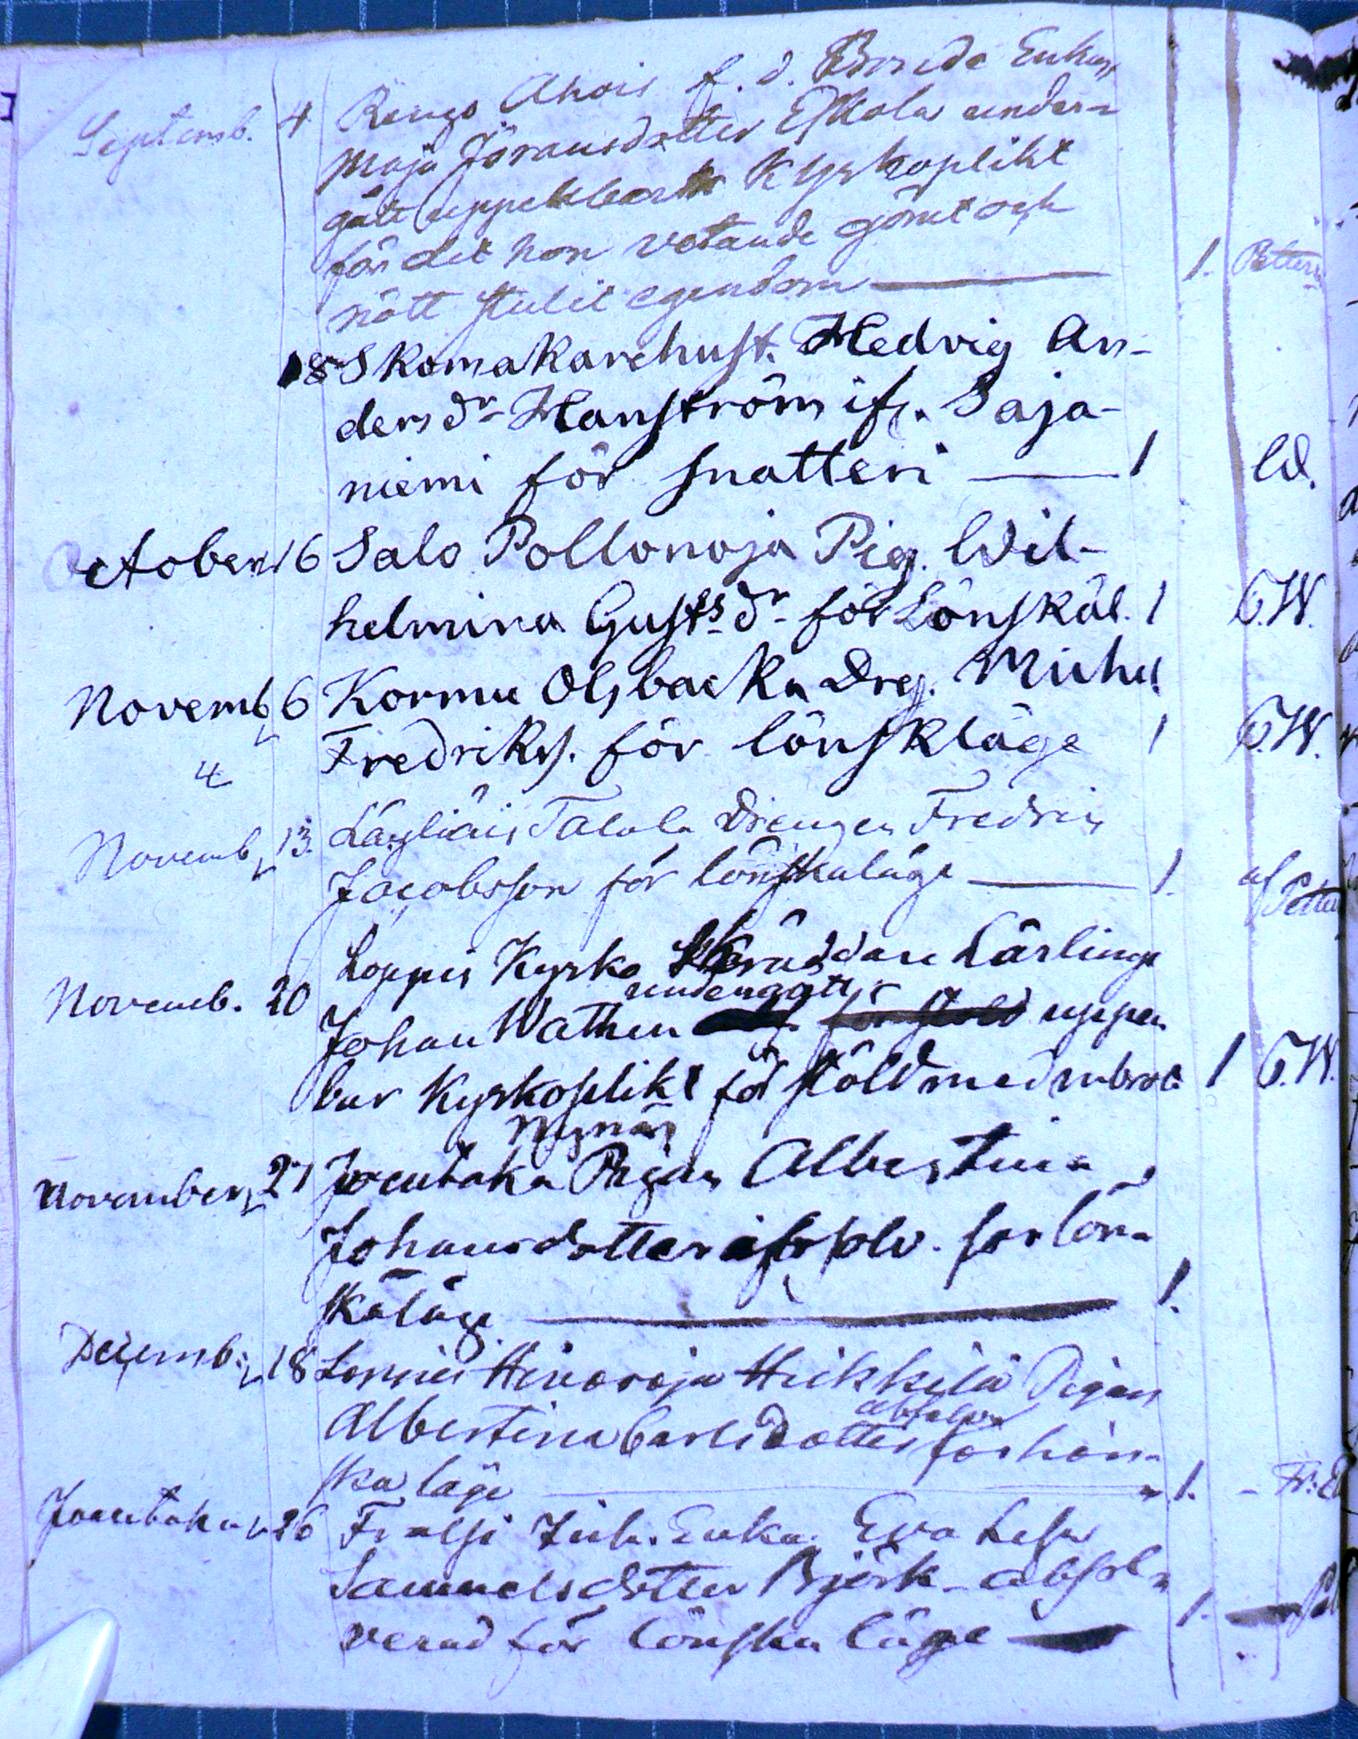 Septemb. 4 Rengo Ahois f. d. Bonde Enkan
Maja Jöransdotter Eskola under-
gått uppenbar Kyrkoplikt
för det hon vetande gömt och
nött stulit egendom 1. Petterss
18 Skomakarehust. Hedvig An-
dersdr Hanström ifr. Saja-
niemi för snatteri 1 W.
October 16 Salo Pollonoja Pig. Wil-
helmina Gustsdr för Lönskäl. 1 C.W.
Novemb. 6 Kormu Olsbacka Drg. Michel
Fredriks. för lönskläge 1 C.W.
4
Novemb. 13. Läyliäis Talola Drengen Fredric
Jacobsson för lönskaläge 1. af Petter
Novemb. 20 Loppis Kyrko Skräddare Lärlinge
undergått
Johan Wathen uppen
bar Kyrkoplikt för stöld med inbrot 1 C.W.
Nynäs
November 27 Joentaka Pigan Albertina
Johansdotter abslv. för lön-
skaläge 1.
Decemb. 18 Loppis Hirvioja Heikkilä Pigan
absolv
Albertina Carlsdotter för lön-
ska läge 1. Fr: E
Joentaka 26 Inh. Enka. Eva Lisa
Samuelsdotter Björk absol-
verad för lönska läge 1.